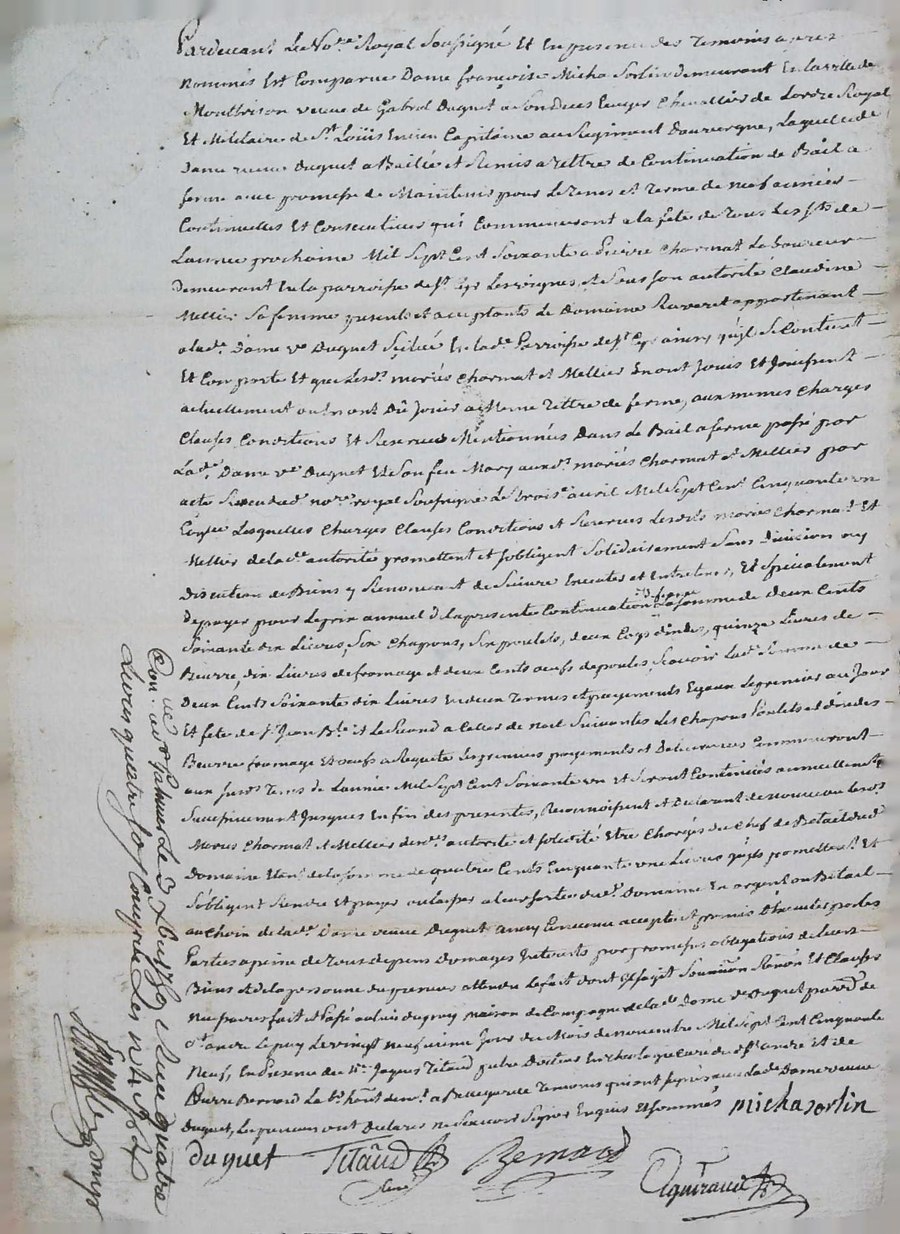 Pardevant Le No.re Royal Soussigné Et En presence des Temoins apres
nommés Est Comparue Dame françoise Micha Sorlin demeurant En la ville de
Montbrison veuve de Gabriel Duguet Chevallier de Lordre Royal
Et Militaire de St Loüis Encien Capitaine au Regiment Dauvergne, Laquelle de
Dame veuve Duguet a Baillé et Remis a Tiltre de Continuation de Bail a
ferme avec promesse de Maintenir pour Le tems et Terme de neuf années
Continuelles Et Consecutives qui Commenceront a la fête de Tous Les Sts de
Lannée prochaine Mil Sept Cent Soixante a Pierre Charmat Laboureur
Demeurant En la parroisse de St Cyr Les vignes, et de Luy Son autorité Claudine
Mellier Sa femme presents et acceptants Le Domaine Raveret appartenant
a lad.e Dame ve Duguet Scitué En lad.e Parroisse de St Cyr ainsy quil Se Contient
Et Comporte Et que Lesd. mariés Charmat et Mellier En ont Jouis Et Jouissent
actuellement ou En ont Dû Jouir a Meme Tiltre de ferme, aux memes Charges
Clauses Conditions Et Reserves Mentionnées Dans Le Bail a ferme passé par
Lad.e Dame ve Duguet Et Son feu Mary auxd. mariés Charmat et Mellier par
acte Receu dud. no.re royal Soussigné Le trois.e avril Mil Sept Cent Cinquante un
Lesquelles Charges Clauses Conditions et Reserves Lesdits mariés Charmat Et
Mellier de lad.e autorité promettent et Sobligent Solidairement Sans Division ny
Discution de Biens y Renoncant de Suivre Executer et Entretenir, Et Specialement
De payer pour Le prix annuel De la presente Continuation de ferme La Somme de deux Cents
Soixante dix Livres, Six Chapons, Six poulets, deux Coqs d'inde, quinze Livres de
Beurre, dix Livres de fromage et deux Cents oeufs de poules Scavoir Lad.e Somme de
Deux Cents Soixante dix Livres En deux Termes et payements Egaux Le premier au Jour
Et fête de St Jean Bte et Le Second a Celle de noel Suivantes Les Chapons Poulets et dindes
Beurre fromage Et oeufs a Requete Les premiers payements et Delivrances Commenceront
aux Susd. Tems de Lannée Mil Sept Cent Soixante un et Seront Continués annuellement
Successivement Jusques En fin des presentes, Reconnoissent et Declarent de nouveau Lesd.
Mariés Charmat et Mellier de autorité et Solidité Etre Chargés du Chef de Betail dud.
Domaine de la Somme de quatre Cents Cinquante une Livres quils promettent Et
Sobligent Rendre Et payer a leur Sortie dud. Domaine En argent ou Bétail
au Choix de lad.e Dame veuve Duguet ainsy Convenu accepté et promis Executer par les
Parties a peine de Tous depens Domages Interests par promesses obligations de leurs
Biens Et de la personne du preneur attendu Le fait dont Il Sagit Soumission Renon Et Clauses
Fait et Passé au lieu Dupuy maison de Campagne de lad.e Dame ve Duguet parroisse de
St andré Le puy Le vingt neufvieme Jour du Mois de novembre Mil Sept Cent Cinquante
Neuf, En Presence de Mre Jaques Titaud prêtre Docteur En theologie curé de St andré Et de
Pierre Bernard de Bellegarde Temoins qui ont Signé avec Lad.e Dame veuve
Duguet, Les preneurs ont Declaré ne Scavoir Signer Enquis Et Sommés micha sorlin
duguet Titaud Curé Bernard
Aguiraud
Con.lé a St Galmier Le 3 Xbre 1759 Reçu quatre
Livres quatre Sols